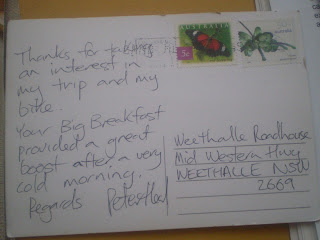 Thanks for taking
an interest in
my trip and my
bike.
Your Big Breakfast
provided a great
boost after a very
cold morning.
Regards
AUSTRALIA
5c
Weethalle Roadhouse
Mid Western Hwy
WEETHALLE NSW
2669